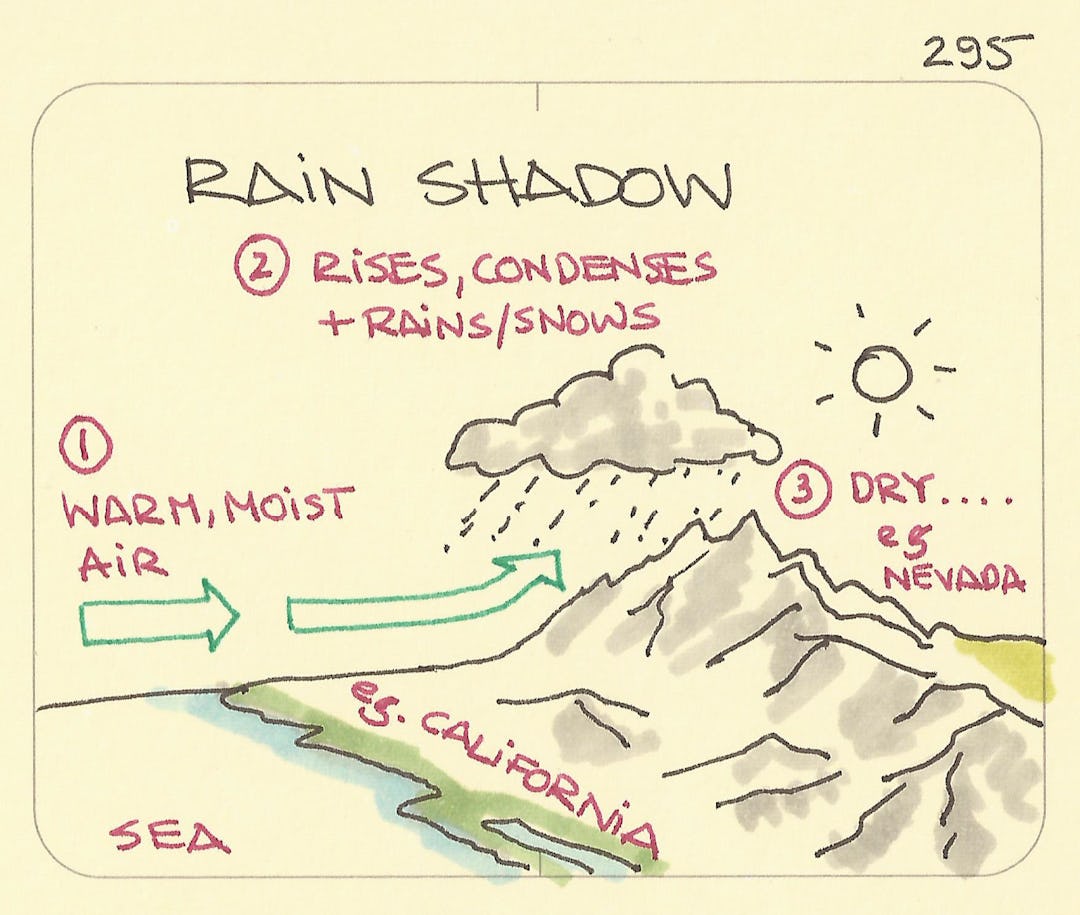 295
RAiN SHADOW
2 RiSES, CONDENSES
+ RAiNS/SNOWS
1
WARM, MOiST
AiR
3 DRY....
eg
NEVADA
eg. CALiFORNiA
SEA